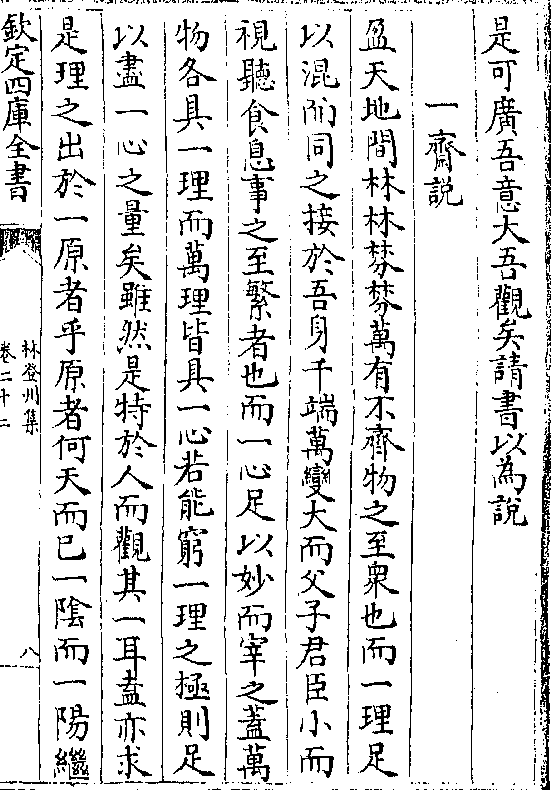 是可廣吾意大吾觀矣請書以為說
一齋說
盈天地間林林棼棼萬有不齊物之至衆也而一理足
以混而同之接於吾身千端萬變大而父子君臣小而
視聽食息事之至繁者也而一心足以妙而宰之蓋萬
物各具一理而萬理皆具一心若能窮一理之極則足
以盡一心之量矣雖然是特於人而觀其一耳盍亦求
是理之出於一原者乎原者何天而已一陰而一陽繼
欽定四庫全書
林登州集
卷二十二
八